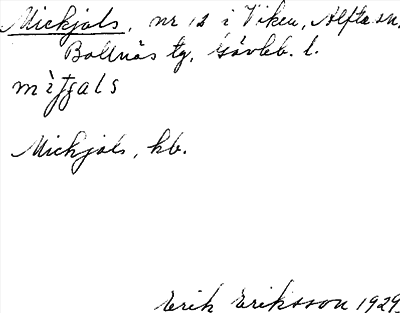 Mickjols, nr 12 i Viken, Alfta sn.
Bollnäs tg, Gävleb. l.
Mickjols, kb.
Erik Eriksson 1929.